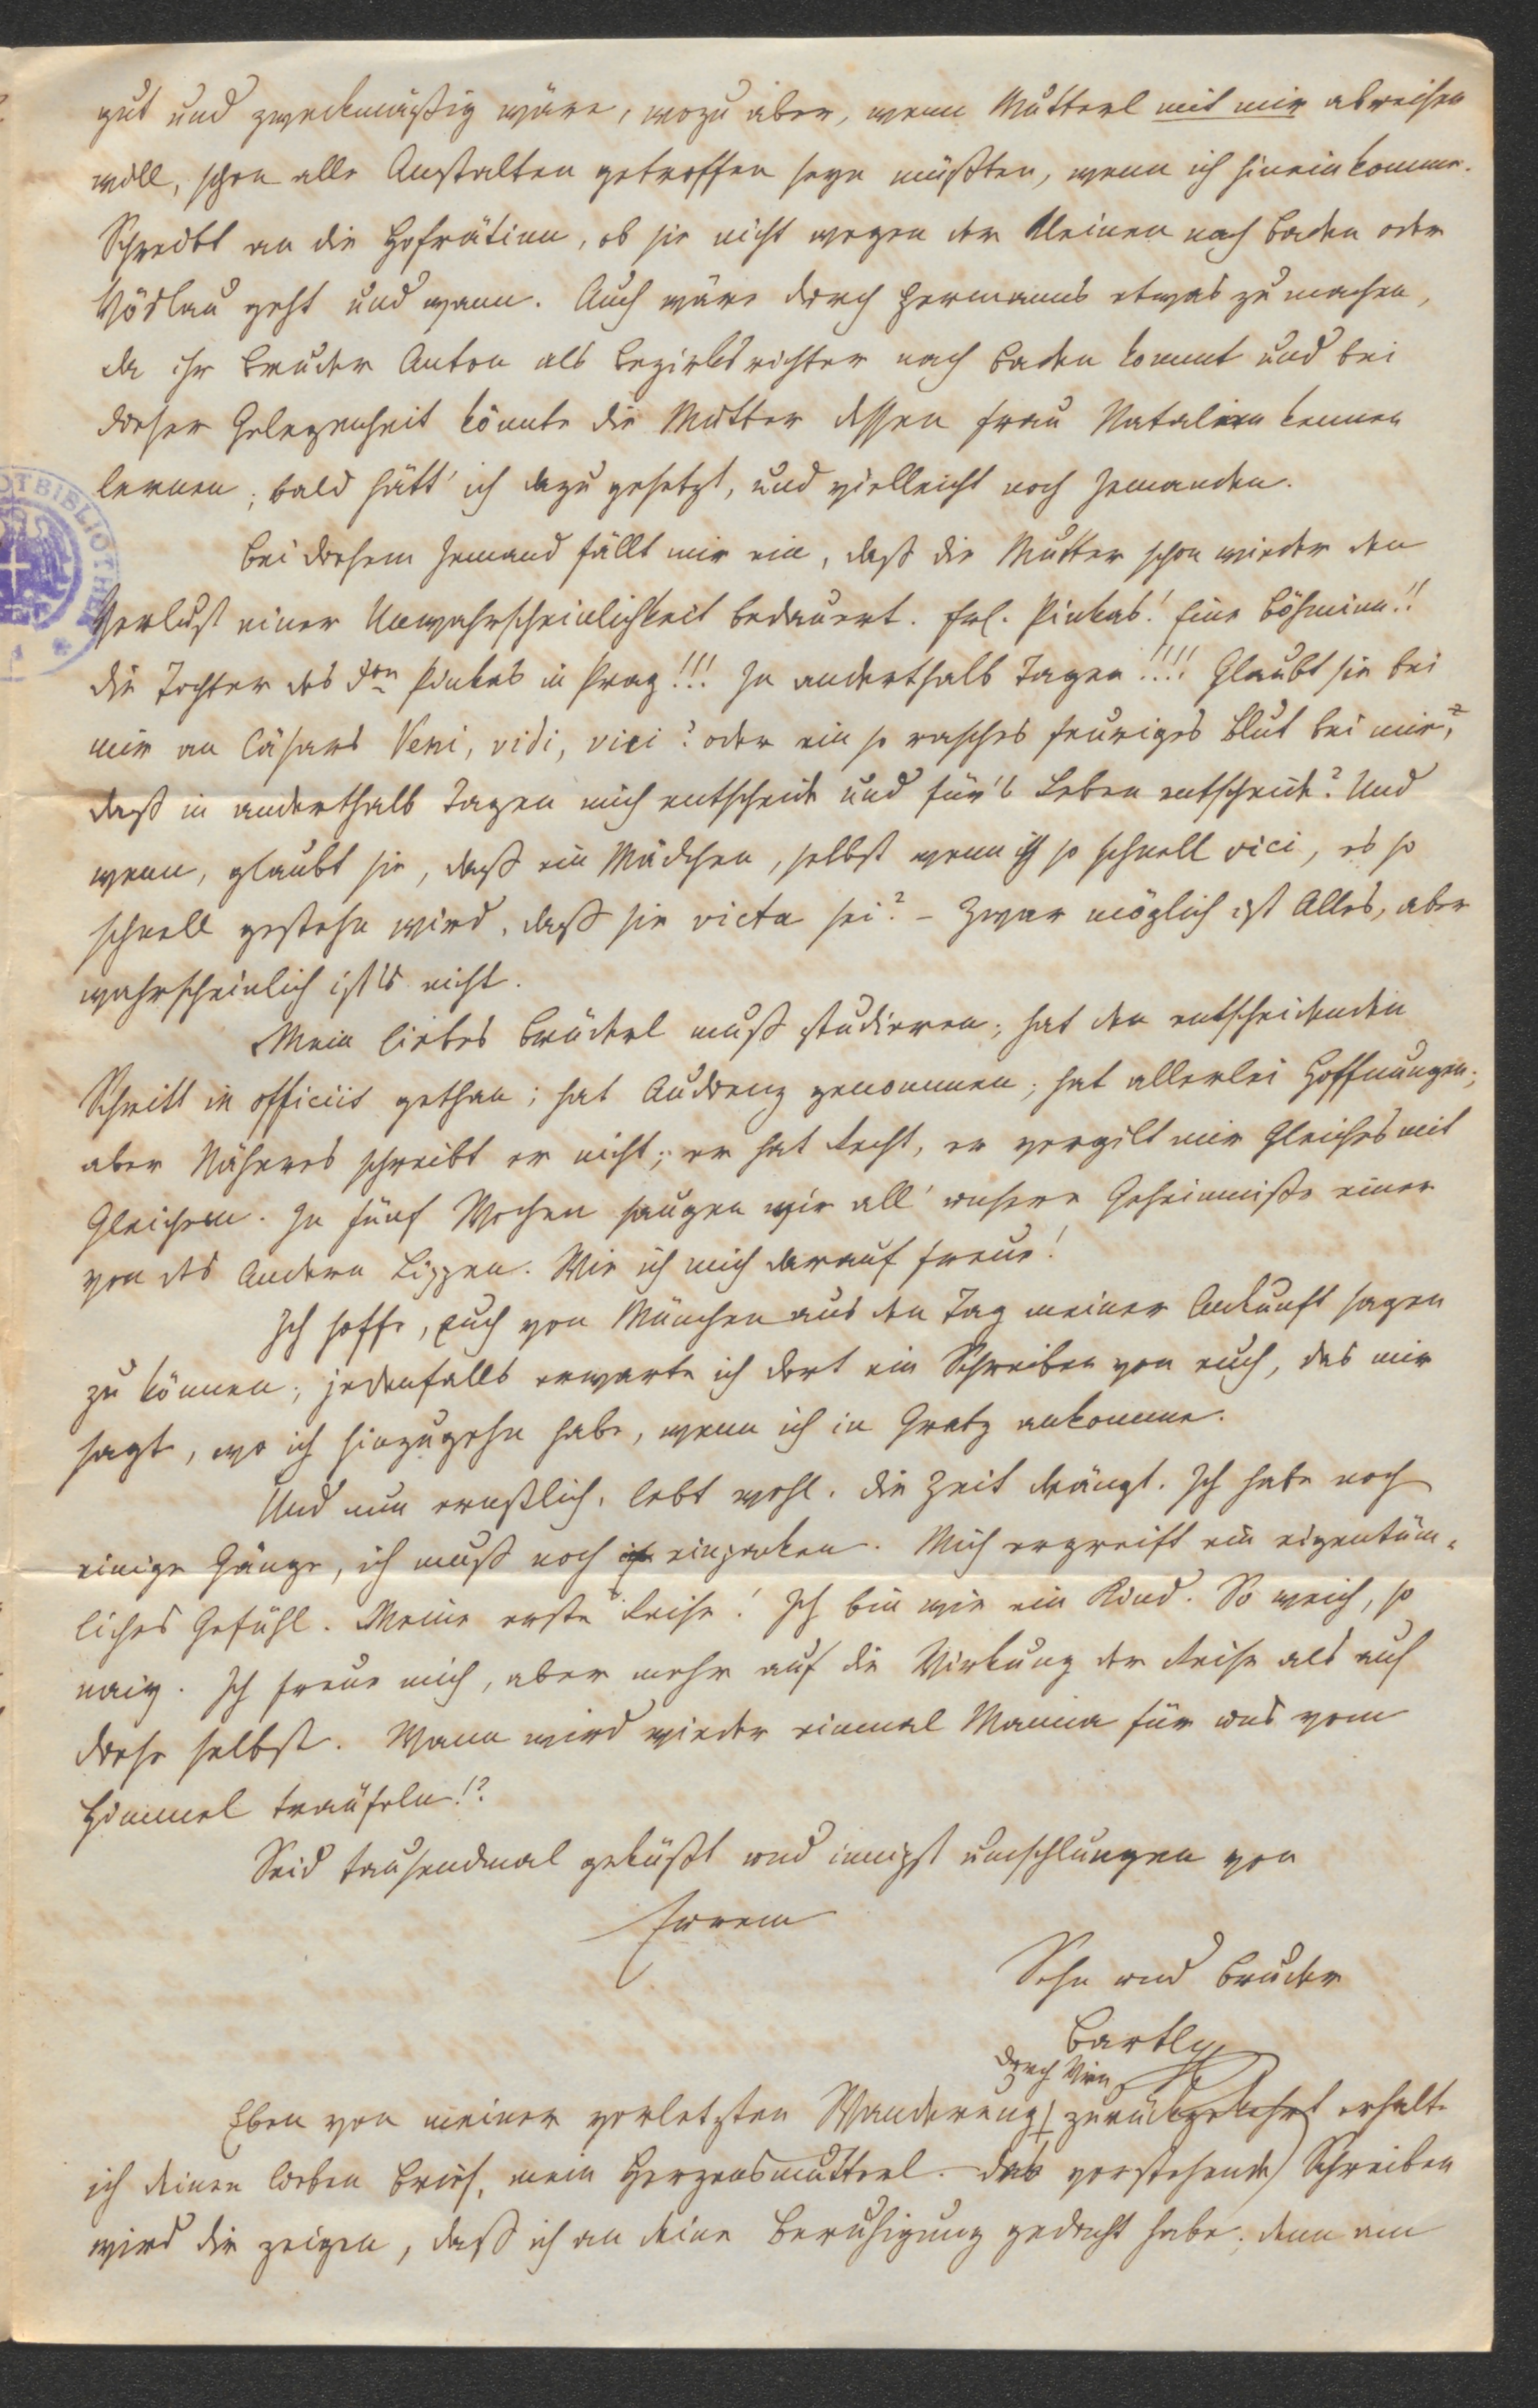 gut und zweckmäßig wäre, wozu aber, wenn Mutterl mit mir abreisen
will, schon alle Anstalten getroffen seyn müßten, wenn ich hineinkomme.
Schreibt an die Hofrätinn, ob sie nicht wegen der Kleinen nach Baden oder
Vöslau geht und wann. Auch wäre durch Hermanns etwas zu machen,
da ihr Bruder Anton als Bezirksrichter nach Baden kommt und bei
dieser Gelegenheit könnte die Mutter dessen Frau Natalien kennen
lernen; bald hätt' ich dazu gesetzt, und vielleicht noch Jemanden.
Bei diesem Jemand fällt mir ein, daß die Mutter schon wieder den
Verlust einer Unwahrscheinlichkeit bedauert. Frl. Pinkas! Eine Böhminn!!
die Tochter des Drn Pinkas in Prag!!! In anderthalb Tagen!!!! Glaubt sie bei
mir an Cäsars Veni, vidi, vici? oder ein so rasches feuriges Blut bei mir,
daß in anderthalb Tagen mich entscheide und für's Leben entscheide? Und
wenn, glaubt sie, daß ein Mädchen, selbst wenn ich so schnell vici, es so
schnell gestehn wird, daß sie victa sei? – Zwar möglich ist Alles, aber
wahrscheinlich ist's nicht.
Mein liebes Brüderl muß studieren; hat den entscheidenden
Schritt in officiis gethan; hat Audienz genommen; hat allerlei Hoffnungen;
aber Näheres schreibt er nicht; er hat Recht, er vergilt mir Gleiches mit
Gleichem. In fünf Wochen saugen wir all' unsere Geheimniße einer
von des Andern Lippen. Wie ich mich darauf freue!
Ich hoffe, Euch von München aus den Tag meiner Ankunft sagen
zu können; jedenfalls erwarte ich dort ein Schreiben von euch, das mir
sagt, wo ich hinzugehn habe, wenn ich in Gratz ankomme.
Und nun ernstlich, lebt wohl. Die Zeit drängt. Ich habe noch
einige Gänge, ich muß noch einpacken. Mich ergreift ein eigentüm-
liches Gefühl. Meine erste Reise! Ich bin wie ein Kind. So weich, so
naiv. Ich freue mich, aber mehr auf die Wirkung der Reise als auf
diese selbst. Wann wird wieder einmal Manna für uns vom
Himmel träufeln!?
Seid tausendmal geküßt und innigst umschlungen von
Eurem
Sohn und Bruder
Bartly
durch Wien
Eben von meiner vorletzten Wanderung zurückgekehrt erhalte
ich deinen lieben Brief, mein Herzensmutterl. Das vorstehende Schreiben
wird dir zeigen, daß ich an deine Beruhigung gedacht habe; denn am